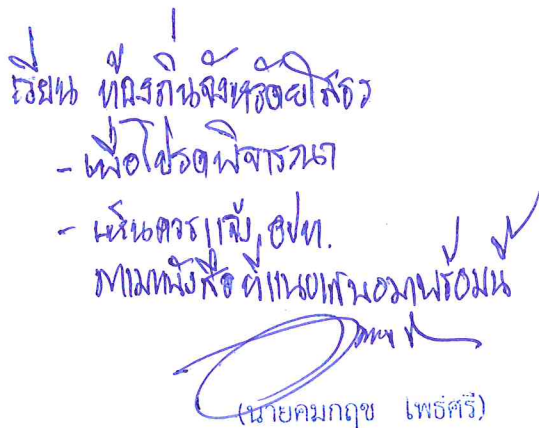 เรียน ท้องถิ่นจังหวัดยโสธร
- เพื่อโปรดพิจารณา
- เห็นควรแจ้ง อปท.
ตามหนังสือที่แนบเสนอมาพร้อมนี้
(นายคมกฤช เพธศรี)